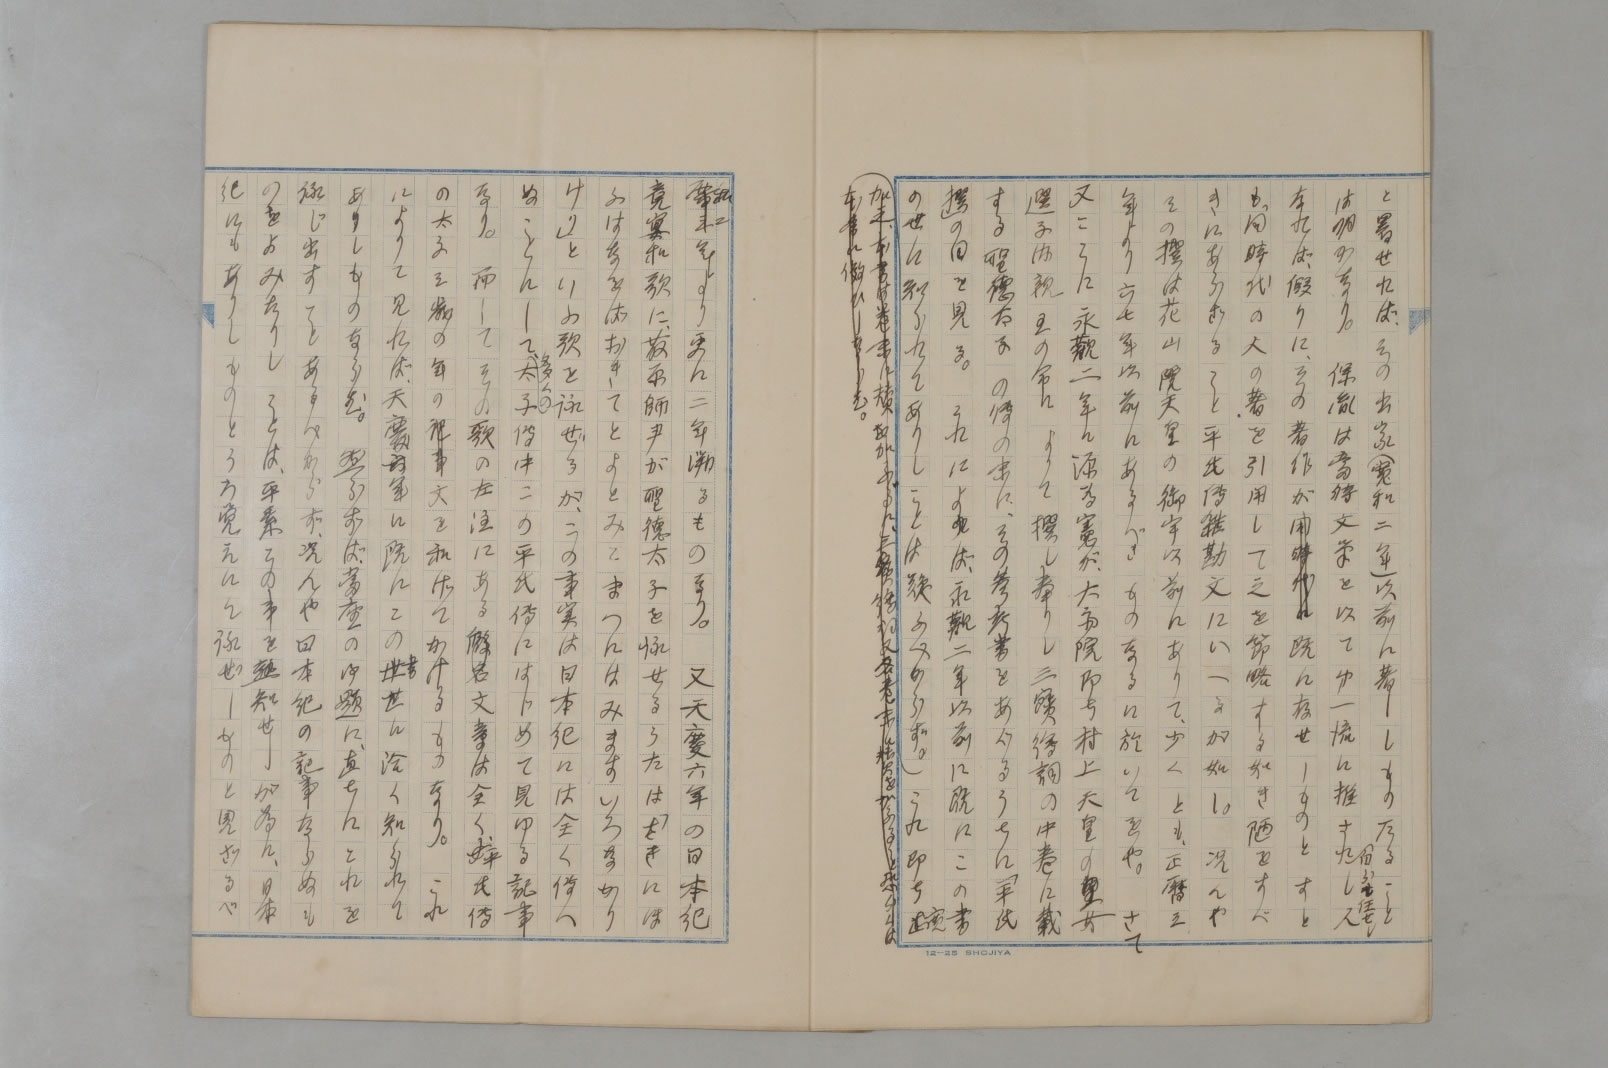 と署せれば、その出家(寛和二年)以前に著ししものなること
は明かなり。保胤は當時文筆を以て一流に推されし人
なれば、假りに、その著作が既に存せしものとすと
も、同時代の人の著を引用して之を節略する如き陋をすべ
きにあらざること平氏傳雜勘文にいへるが如し。況んや
その撰は花山院天皇の御宇以前にありて、少くとも、正暦三
年より六七年以前にあるべきものなるに於いてをや。さて
又ここに永觀二年に源爲憲が、大斎院即ち村上天皇の皇女
選子内親王の命によりて撰し奉りし三寶繪詞の中巻に載
する聖徳太子の傳の末に、その参考書をあぐるうちに「平氏
撰」の目を見る。それによれば、永觀二年以前に既にこの書
の世に知られてありしことは疑ふべからず。これ即ち
年より更に二年溯るものなり。又天慶六年の日本紀
竟宴和歌に、藤原師尹が聖徳太子を詠せるうたは「をきには
ふはなをばおきてとよとみこまつにはみますいろなかり
けり」といふ歌を詠ぜるが、この事実は日本紀には全く傳へ
ぬことにして、太子傳中この平氏傳にはじめて見ゆる記事
なり。而してその歌の左注にある假名文章は全く平氏傳
の太子三歳の年の記事文を和げてかけるものなり。これ
によりて見れば、天慶年に既にこの書世に洽く知られて
ありしものならむ。然らずば、當座の題に、直ちにこれを
詠じ出すことあるべからず、況んや日本紀の記事ならぬも
のをよみたりしことは、平素その事を熟知せしが爲に、日本
紀にもありしものとうろ覺えにて詠ぜしものと見ざるべ
12—25 SHOJIYA